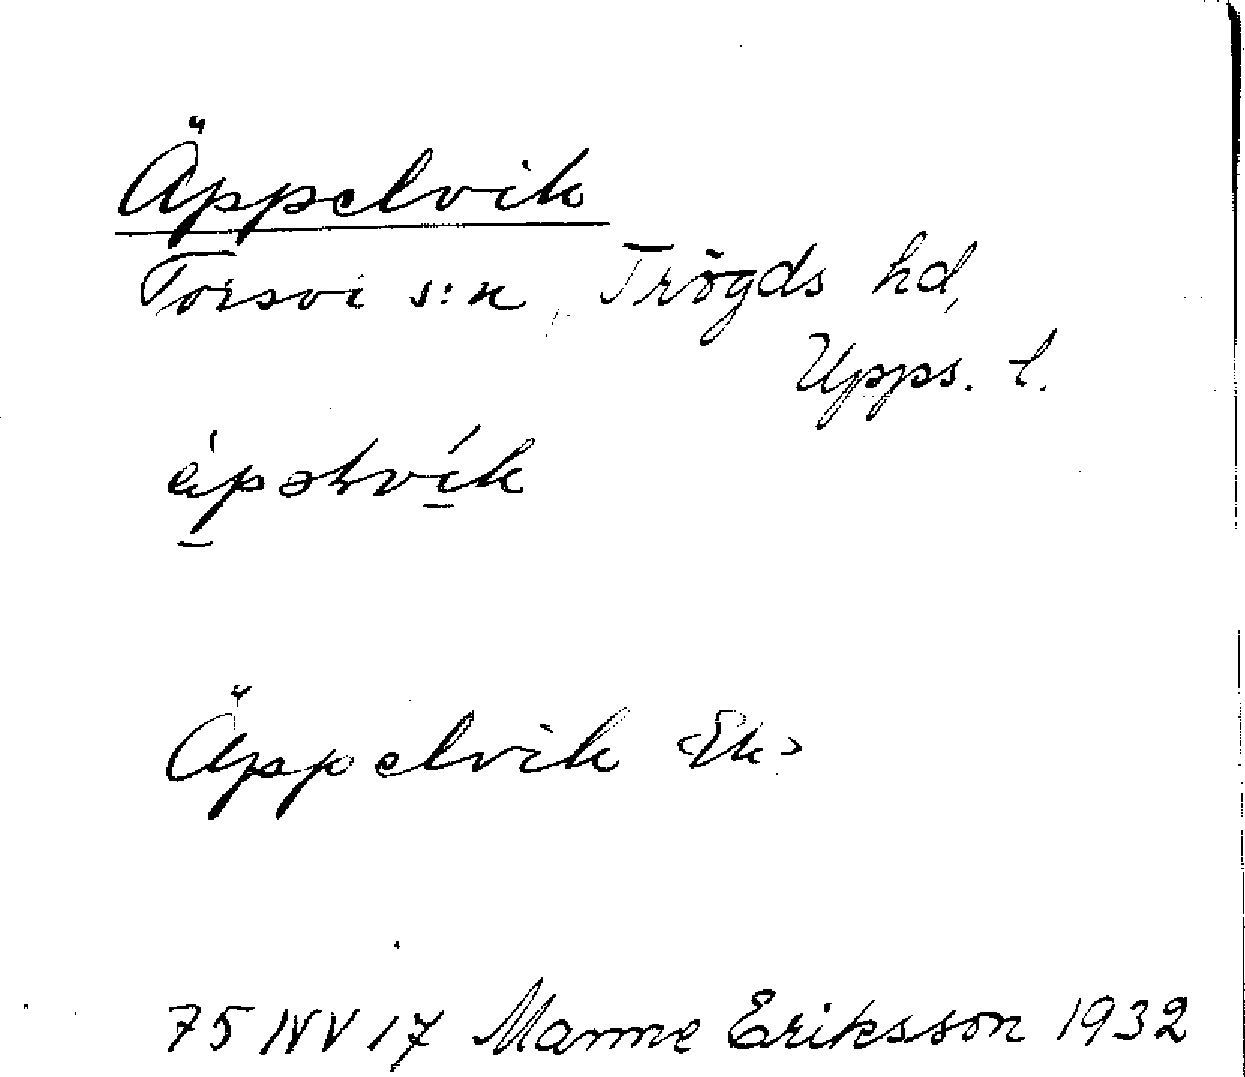 Äppelvik
Torsvi s:n, Trögds hd,
Upps. l.
Äppelvik <Ek>
75 NV 17 Manne Eriksson 1932